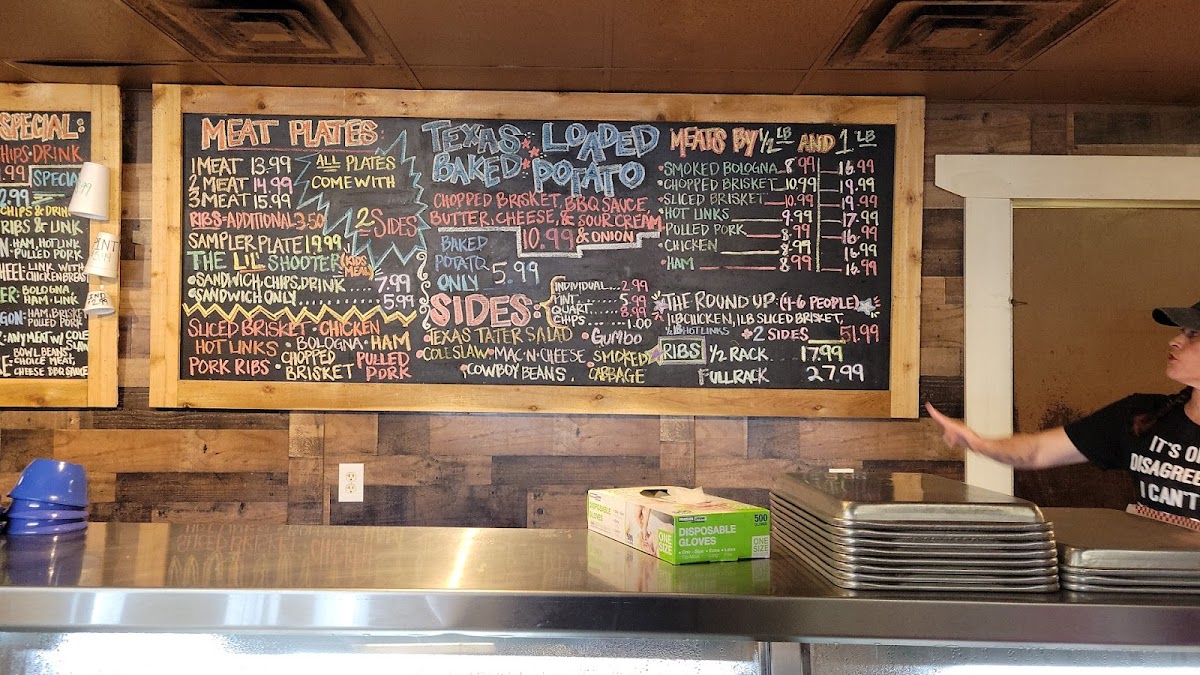 SPECIAL:
HIPS · DRINK
.99
2.99 SPECIA
CHIPS & DRINK
RIBS & LINK
N-HAM, HOT LINK
PULLED PORK
HEEL: LINK WITH
CHICKEN BREAST
ER: BOLOGNA
HAM · LINK
GON: HAM, BRISKET
PULLED PORK
: ANY MEAT W/ COLE
SLAW
BOWL BEANS,
CHOICE MEAT,
CHEESE BBQ SAUCE
MEAT PLATES
1 MEAT 13.99
2 MEAT 14.99
3 MEAT 15.99
RIBS-ADDITIONAL 3.50
ALL PLATES
COME WITH
2 SIDES
SAMPLER PLATE 19.99
THE LIL' SHOOTER (KIDS MEAL)
SANDWICH, CHIPS, DRINK 7.99
SANDWICH ONLY ........ 5.99
SLICED BRISKET · CHICKEN
HOT LINKS · BOLOGNA · HAM
PORK RIBS · CHOPPED BRISKET PULLED PORK
TEXAS LOADED
BAKED POTATO
CHOPPED BRISKET, BBQ SAUCE
BUTTER, CHEESE, & SOUR CREAM
10.99 & ONION
BAKED
POTATO
ONLY 5.99
SIDES:
INDIVIDUAL...2.99
PINT.......5.99
QUART......8.99
CHIPS......1.00
TEXAS TATER SALAD · GUMBO
COLE SLAW · MAC-N-CHEESE · SMOKED CABBAGE
COWBOY BEANS.
MEATS BY 1/2 LB AND 1 LB
SMOKED BOLOGNA 8.99 16.99
CHOPPED BRISKET 10.99 19.99
SLICED BRISKET 10.99 19.99
HOT LINKS 9.99 17.99
PULLED PORK 8.99 16.99
CHICKEN 8.99 16.99
HAM 8.99 16.99
THE ROUND UP: (4-6 PEOPLE)
1 LB CHICKEN, 1 LB SLICED BRISKET,
1/2 LB HOT LINKS +2 SIDES 51.99
RIBS 1/2 RACK 17.99
FULL RACK 27.99
DISPOSABLE
GLOVES
ONE
SIZE
500
DISPOSABLE
GLOVES
ONE
SIZE
IT'S O
DISAGREE
I CAN'T